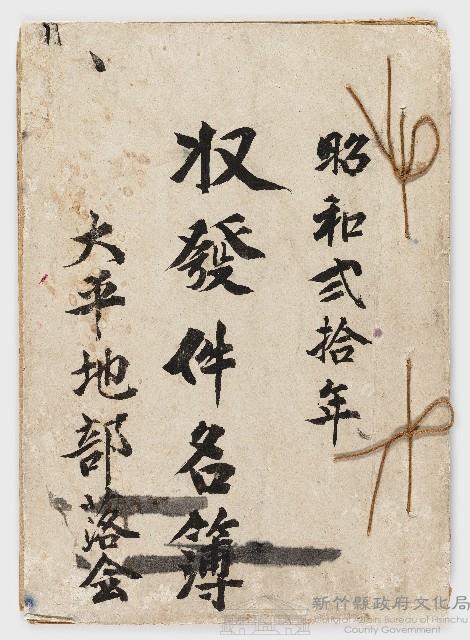 昭和弐拾年
収發件名簿
大平地部落会
新竹縣政府文化局
Cultural Affairs Bureau of Hsinchu
County Government